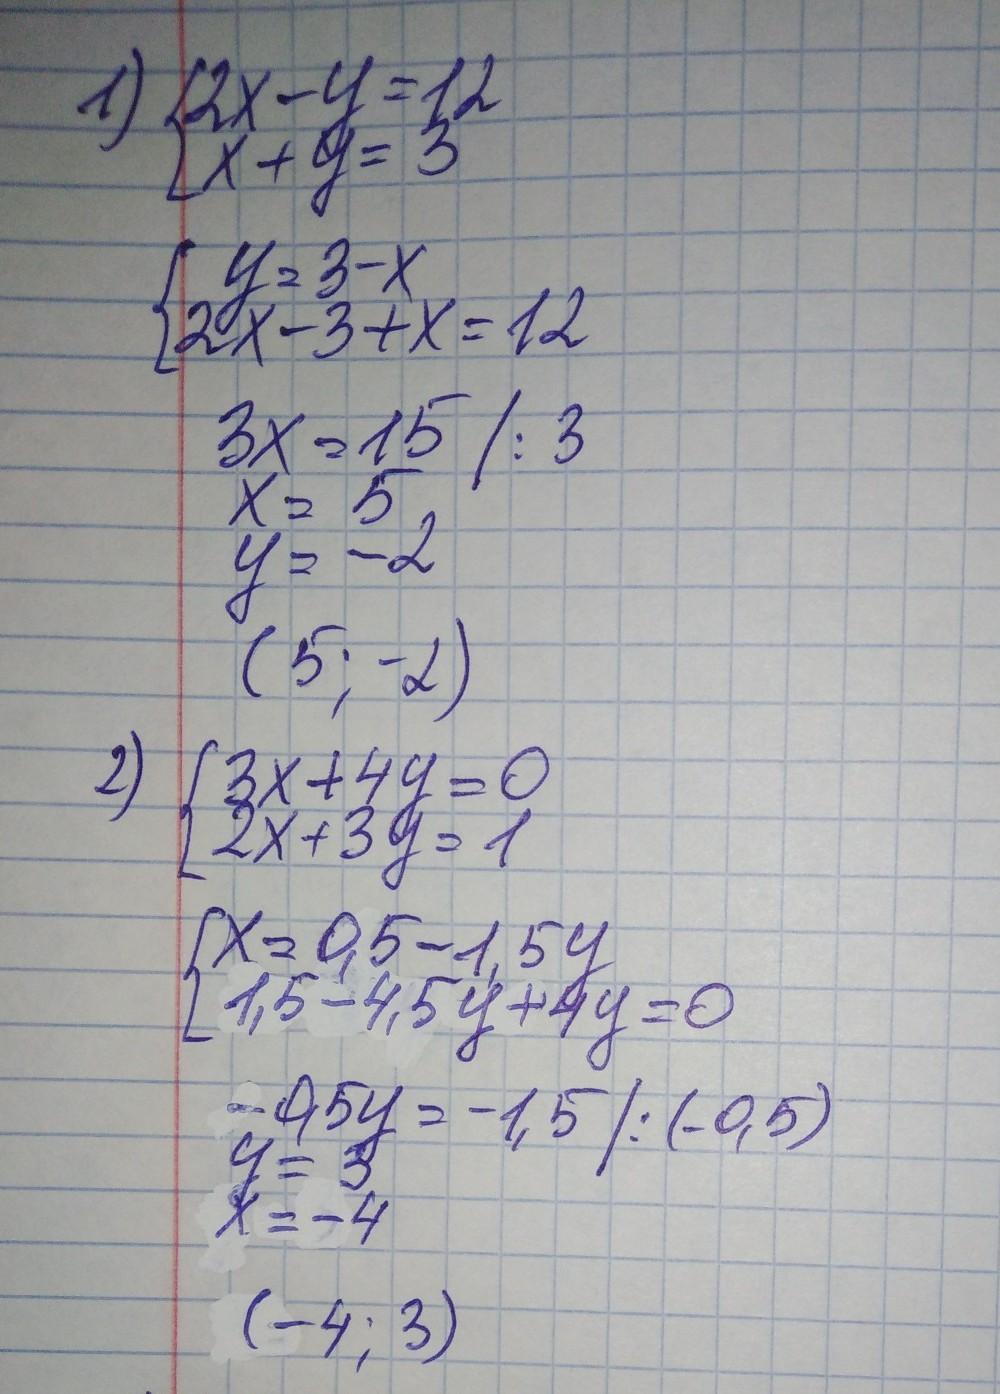 1) {2x-y=12
x+y=3
{y=3-x
2x-3+x=12
3x=15 /:3
x=5
y=-2
(5;-2)
2) {3x+4y=0
2x+3y=1
{x=0,5-1,5y
1,5-4,5y+4y=0
-0,5y=-1,5 /:(-0,5)
y=3
x=-4
(-4;3)